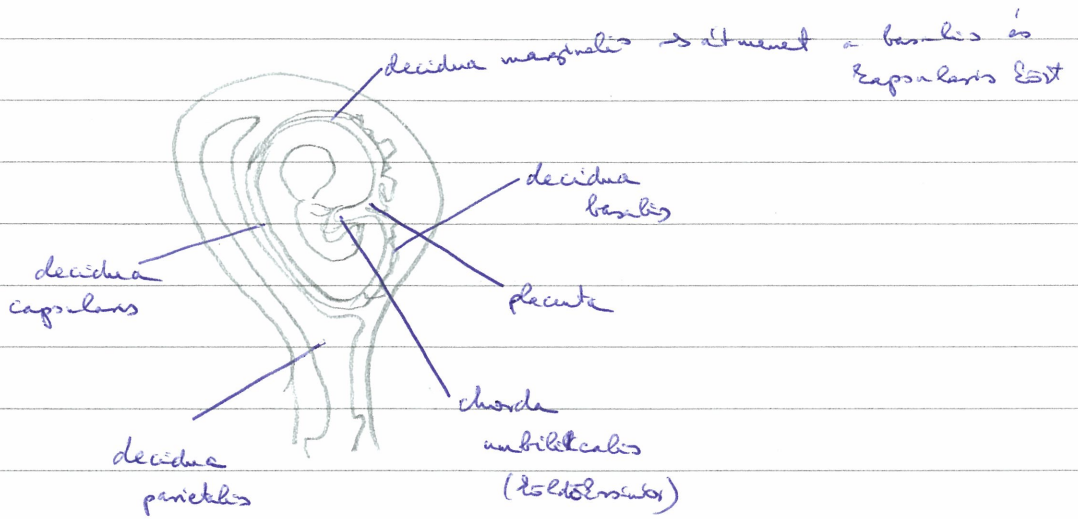 decidua marginalis → átmenet a basalis és
kapsularis közt
decidua
basalis
decidua
capsularis
placenta
chorda
umbilicalis
(köldökzsinór)
decidua
parietalis